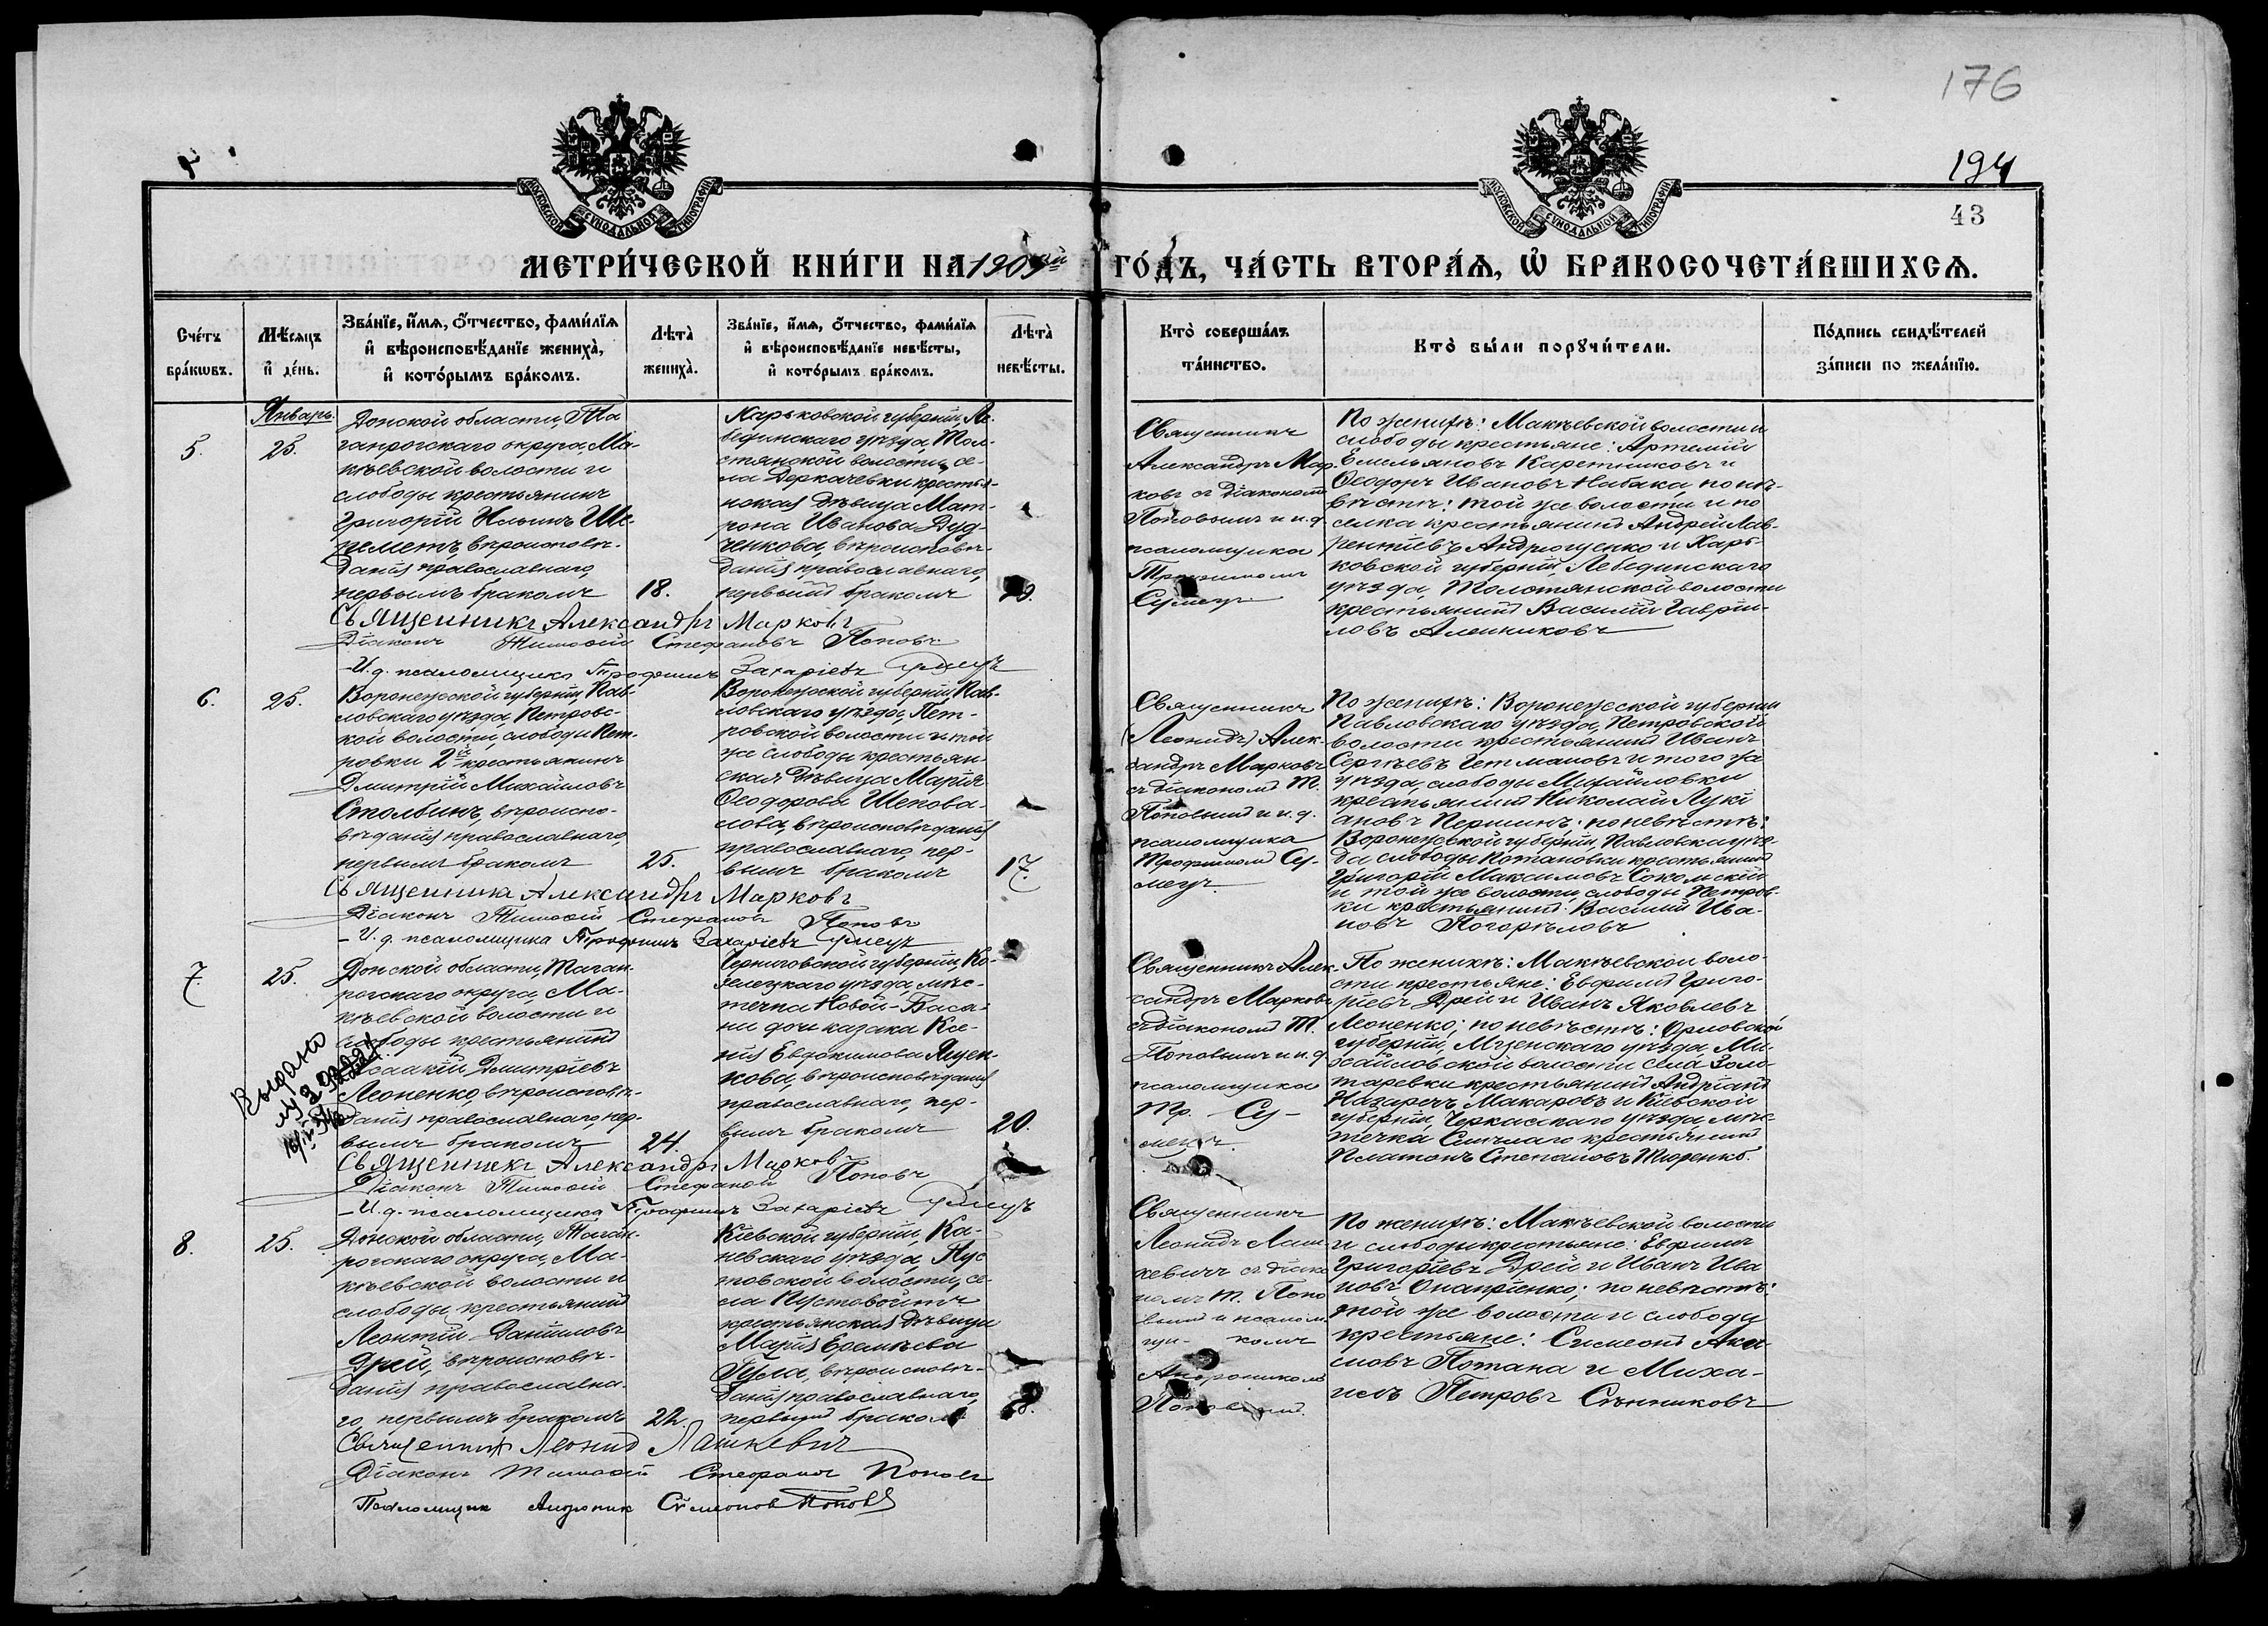 176
194
43
МОСКОВСКОЙ СѴНОДАЛЬНОЙ ТИПОГРАФІИ
МОСКОВСКОЙ СѴНОДАЛЬНОЙ ТИПОГРАФІИ
МЕТРИ́ЧЕСКОЙ КНИ́ГИ НА 1909й ГО́ДЪ, ЧА́СТЬ ВТОРА́Ѧ, Ѡ҆ БРАКОСОЧЕТА́ВШИХСѦ.
Сче́тъ
бра́кѡвъ.
Мѣ́сѧцъ
и҆ де́нь.
Зва́нїе, и҆́мѧ, ѻ҆́тчество, фами́лїѧ
и҆ вѣроисповѣ́данїе жениха̀,
и҆ кото́рымъ бра́комъ.
Лѣта̀
жениха̀.
Зва́нїе, и҆́мѧ, ѻ҆́тчество, фами́лїѧ
и҆ вѣроисповѣ́данїе невѣ́сты,
и҆ кото́рымъ бра́комъ.
Лѣта̀
невѣ́сты.
Кто̀ соверша́лъ
та́инство.
Кто̀ бы́ли порꙋчи́тели.
По́дпись свидѣ́телей
за́писи по жела́нїю.
Январь.
5.
25.
Донской области, Та
ганрогскаго округа, Ма-
кѣевской волости и
слободы крестьянинъ
Григорій Ильинъ Ше-
реметъ, вѣроисповѣ-
данія православнаго,
первымъ бракомъ
18.
Харьковской губерніи, Ле-
бединскаго уѣзда, Тол-
стянской волости, се-
ла Деркачевки крестья-
нская дѣвица Мат-
рона Иванова Дуд-
ченкова, вѣроисповѣ-
данія православнаго,
первымъ бракомъ
Священникъ
Александръ Мар-
ковъ съ діакономъ
Поповымъ и и.д.
псаломщика
Трофимомъ
Сумецъ.
По женихѣ: Макѣевской волости и
слободы крестьяне: Артемій
Емельяновъ Каретниковъ и
Ѳеодоръ Ивановъ Набака, по не-
вѣстѣ: той же волости и по
селка крестьянинъ Андрей Лав-
рентіевъ Андрющенко и Харь-
ковской губерніи, Лебединскаго
уѣзда, Толстянской волости
крестьянинъ Василій Гаврії-
ловъ Алейниковъ
Священникъ Александръ Марковъ
Діаконъ Тимоѳій Стефановъ Поповъ
И.д. псаломщика Трофимъ Захаріевъ Сумецъ
6.
25.
Воронежской губерніи, Пав-
ловскаго уѣзда, Петровс-
кой волости, слободы Пет-
ровки 2й крестьянинъ
Дмитрій Михайловъ
Столбинъ, вѣроиспо-
вѣданія православнаго,
первымъ бракомъ
25.
Воронежской губерніи, Пав-
ловскаго уѣзда, Пет-
ровской волости и той
же слободы крестьян-
ская дѣвица Марія
Ѳеодорова Шепова-
лова, вѣроисповѣданія
православнаго, пер-
вымъ бракомъ
17
Священникъ
(Леонидъ) Алек-
сандръ Марковъ
съ діакономъ Т.
Поповымъ и и.д.
псаломщика
Трофимомъ Су-
мецъ.
По женихѣ: Воронежской губерніи
Павловскаго уѣзда, Петровской
волости крестьянинъ Иванъ
Сергѣевъ Гетмановъ и того же
уѣзда, слободы Михайловки
крестьянинъ Николай Лукі
ановъ Першинъ; по невѣстѣ:
Воронежской губерніи, Павловск. уѣз-
да слободы Потаповки крестьянинъ
Григорій Максимовъ Сокольскій
и той же волости, слободы Петров-
ки крестьянинъ Василій Ива-
новъ Погорѣловъ
Священникъ Александръ Марковъ
Діаконъ Тимоѳій Стефановъ Поповъ
И.д. псаломщика Трофимъ Захаріевъ Сумецъ
7.
25.
Выдано
Донской области, Таган-
рогскаго округа, Ма-
кѣевской волости и
слободы крестьянинъ
Исаакій Дмитріевъ
Леоненко, вѣроисповѣ-
данія православнаго, пер-
вымъ бракомъ
24.
Черниговской губерніи, Ко-
зелецкаго уѣзда, мѣс-
течка Новой-Баса-
ни дочь казака Ксе-
нія Евдокимова Яцен-
кова, вѣроисповѣданія
православнаго, пер-
вымъ бракомъ
20.
Священникъ Алек-
сандръ Марковъ
съ діакономъ Т.
Поповымъ и и.д.
псаломщика
Тр. Су-
мецъ.
По женихѣ: Макѣевской воло-
сти крестьяне: Евфимій Григо-
ріевъ Дрей и Иванъ Яковлевъ
Леоненко; по невѣстѣ: Орловской
губерніи, Мценскаго уѣзда, Ми-
хайловской волости села Золо-
таревки крестьянинъ Андріанъ
Назаречъ Макаровъ и Кіевской
губерніи, Черкасскаго уѣзда, мѣс-
течка Смѣлаго крестьянинъ
Платонъ Степановъ Тюренко.
Священникъ Александръ Марковъ
Діаконъ Тимоѳій Стефановъ Поповъ
И.д. псаломщика Трофимъ Захаріевъ Сумецъ
8.
25.
Донской области, Таган-
рогскаго округа, Ма-
кѣевской волости и
слободы крестьянинъ
Леонтій Данииловъ
Дрей, вѣроисповѣ-
данія православна-
го, первымъ бракомъ
22.
Кіевской губерніи, Ка-
невскаго уѣзда, Пус
товской волости, се-
ла Пустовойтъ
крестьянская дѣвица
Марія Еремѣева
Гула, вѣроисповѣ-
данія православнаго,
первымъ бракомъ
Священникъ
Леонидъ Лаш-
кевичъ съ діако
номъ Т. Попо
вымъ и псалом
щи- комъ
Андроникомъ
Поповымъ.
По женихѣ: Макѣевской волости
и слободы крестьяне: Евфимъ
Григоріевъ Дрей и Иванъ Ива
новъ Онапріенко; по невѣстѣ:
той же волости и слободы
крестьяне: Симеонъ Аки-
мовъ Потапа и Миха-
илъ Петровъ Сѣнниковъ
Священникъ Леонид Лашкевич
Діаконъ Тимоѳій Стефановъ Поповъ
Псаломщик Андроник Симеонов Поповъ